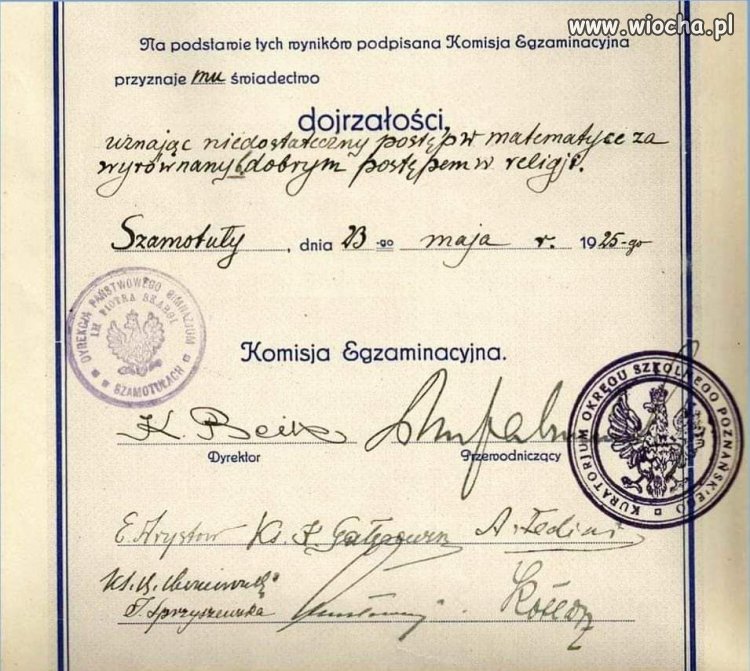 www.wiocha.pl
Na podstawie tych wyników podpisana Komisja Egzaminacyjna
przyznaje mu świadectwo
dojrzałości,
uznając niedostateczny postęp w matematyce za
wyrównany dobrym postępem w religji.
Szamotuły, dnia 23-go maja r. 1925-go
DYREKCJA PAŃSTWOWEGO GIMNAZJUM
IM PIOTRA SKARGI
SZAMOTUŁACH
Komisja Egzaminacyjna.
KURATORJUM OKRĘGU SZKOLNEGO POZNAŃSKIEGO
K.
Dyrektor
Przewodniczący
Ks.